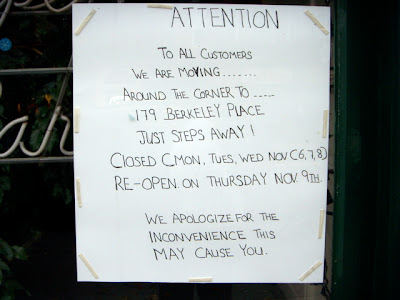 ATTENTION
TO ALL CUSTOMERS
WE ARE MOVING.......
AROUND THE CORNER TO .....
179 BERKELEY PLACE
JUST STEPS AWAY!
CLOSED (MON, TUES, WED NOV (6,7,8)
RE-OPEN ON THURSDAY NOV. 9TH.
WE APOLOGIZE FOR THE
INCONVENIENCE THIS
MAY CAUSE YOU.